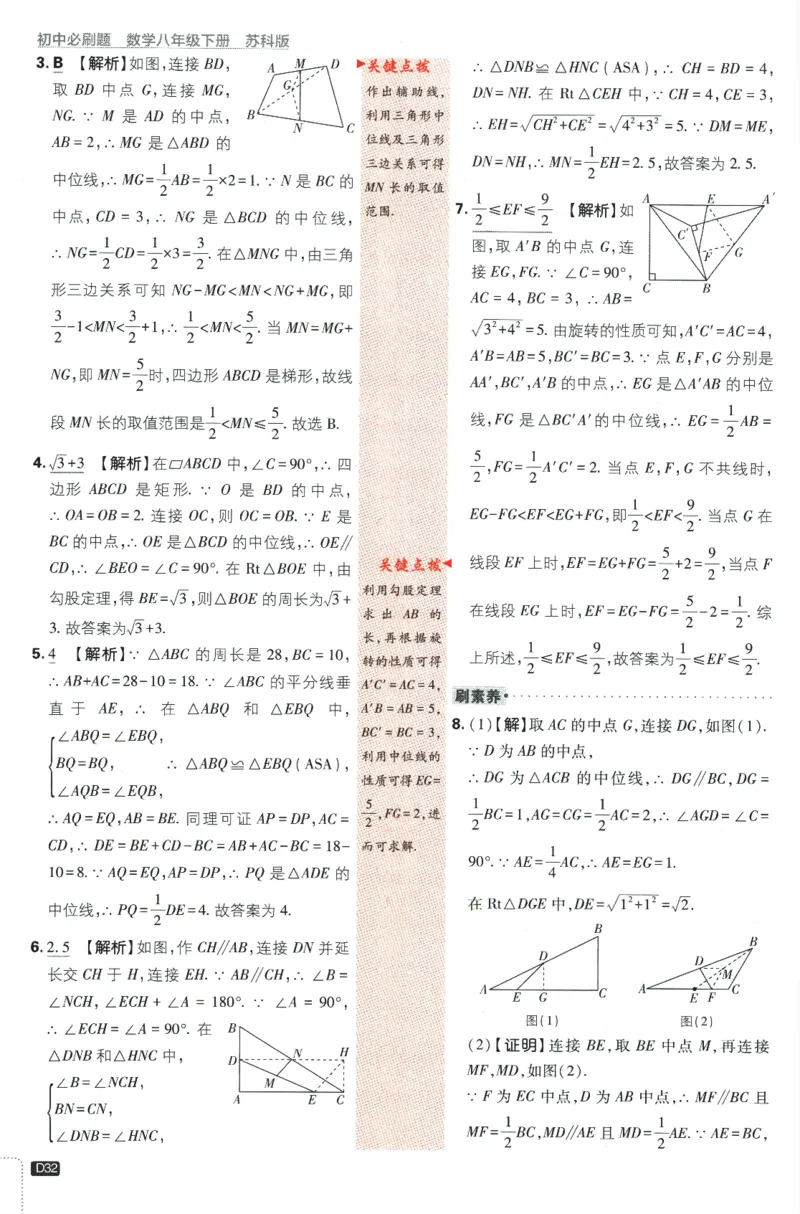 初中必刷题 数学八年级下册 苏科版
3. B 【解析】如图,连接 BD,
取 BD 中点 G,连接 MG,
NG. ∵ M 是 AD 的中点,
AB=2,∴ MG 是△ABD 的
中位线,∴ MG=1/2AB=1/2×2=1. ∵ N 是 BC 的
中点, CD = 3, ∴ NG 是 △BCD 的中位线,
∴ NG=1/2CD=1/2×3=3/2. 在△MNG 中,由三角
形三边关系可知 NG-MG<MN<NG+MG,即
3/2-1<MN<3/2+1,∴ 1/2<MN<5/2. 当 MN=MG+
NG,即 MN=5/2时,四边形 ABCD 是梯形,故线
段 MN 长的取值范围是1/2<MN≤5/2. 故选 B.
A M D
G
B N C
4. √3+3 【解析】在▱ABCD 中,∠C=90°,∴ 四
边形 ABCD 是矩形. ∵ O 是 BD 的中点,
∴ OA=OB=2. 连接 OC,则 OC=OB. ∵ E 是
BC 的中点,∴ OE 是△BCD 的中位线,∴ OE∥
CD,∴ ∠BEO=∠C=90°. 在 Rt△BOE 中,由
勾股定理,得 BE=√3,则△BOE 的周长为√3+
3. 故答案为√3+3.
5. 4 【解析】∵ △ABC 的周长是 28,BC=10,
∴ AB+AC=28-10=18. ∵ ∠ABC 的平分线垂
直于 AE, ∴ 在 △ABQ 和 △EBQ 中,
∠ABQ=∠EBQ,
BQ=BQ, ∴ △ABQ≌△EBQ(ASA),
∠AQB=∠EQB,
∴ AQ=EQ,AB=BE. 同理可证 AP=DP,AC=
CD,∴ DE=BE+CD-BC=AB+AC-BC=18-
10=8. ∵ AQ=EQ,AP=DP,∴ PQ 是△ADE 的
中位线,∴ PQ=1/2DE=4. 故答案为 4.
6. 2.5 【解析】如图,作 CH∥AB,连接 DN 并延
长交 CH 于 H,连接 EH. ∵ AB∥CH,∴ ∠B=
∠NCH, ∠ECH + ∠A = 180°. ∵ ∠A = 90°,
∴ ∠ECH=∠A=90°. 在
△DNB 和△HNC 中,
∠B=∠NCH,
BN=CN,
∠DNB=∠HNC,
B
D N H
M
A E C
D32
关键点拨
作出辅助线,
利用三角形中
位线及三角形
三边关系可得
MN 长的取值
范围.
关键点拨
利用勾股定理
求出 AB 的
长,再根据旋
转的性质可得
A'C'=AC=4,
A'B=AB=5,
BC'=BC=3,
利用中位线的
性质可得 EG=
5/2,FG=2,进
而可求解.
∴ △DNB≌△HNC(ASA),∴ CH=BD=4,
DN=NH. 在 Rt△CEH 中,∵ CH=4,CE=3,
∴ EH=√CH²+CE²=√4²+3²=5. ∵ DM=ME,
DN=NH,∴ MN=1/2EH=2.5,故答案为 2.5.
7. 1/2≤EF≤9/2 【解析】如
图,取 A'B 的中点 G,连
接 EG,FG. ∵ ∠C=90°,
AC = 4, BC = 3, ∴ AB=
√3²+4²=5. 由旋转的性质可知,A'C'=AC=4,
A'B=AB=5,BC'=BC=3. ∵ 点 E,F,G 分别是
AA',BC',A'B 的中点,∴ EG 是△A'AB 的中位
线,FG 是△BC'A'的中位线,∴ EG=1/2AB=
5/2,FG=1/2A'C'=2. 当点 E,F,G 不共线时,
EG-FG<EF<EG+FG,即1/2<EF<9/2. 当点 G 在
线段 EF 上时,EF=EG+FG=5/2+2=9/2,当点 F
在线段 EG 上时,EF=EG-FG=5/2-2=1/2. 综
上所述,1/2≤EF≤9/2,故答案为1/2≤EF≤9/2.
A E A'
C'
F G
C B
刷素养
8. (1)【解】取 AC 的中点 G,连接 DG,如图(1).
∵ D 为 AB 的中点,
∴ DG 为△ACB 的中位线,∴ DG∥BC,DG=
1/2BC=1,AG=CG=1/2AC=2,∴ ∠AGD=∠C=
90°. ∵ AE=1/4AC,∴ AE=EG=1.
在 Rt△DGE 中,DE=√1²+1²=√2.
B
D
A E G C
图(1)
B
D
M
A E F C
图(2)
(2)【证明】连接 BE,取 BE 中点 M,再连接
MF,MD,如图(2).
∵ F 为 EC 中点,D 为 AB 中点,∴ MF∥BC 且
MF=1/2BC,MD∥AE 且 MD=1/2AE. ∵ AE=BC,